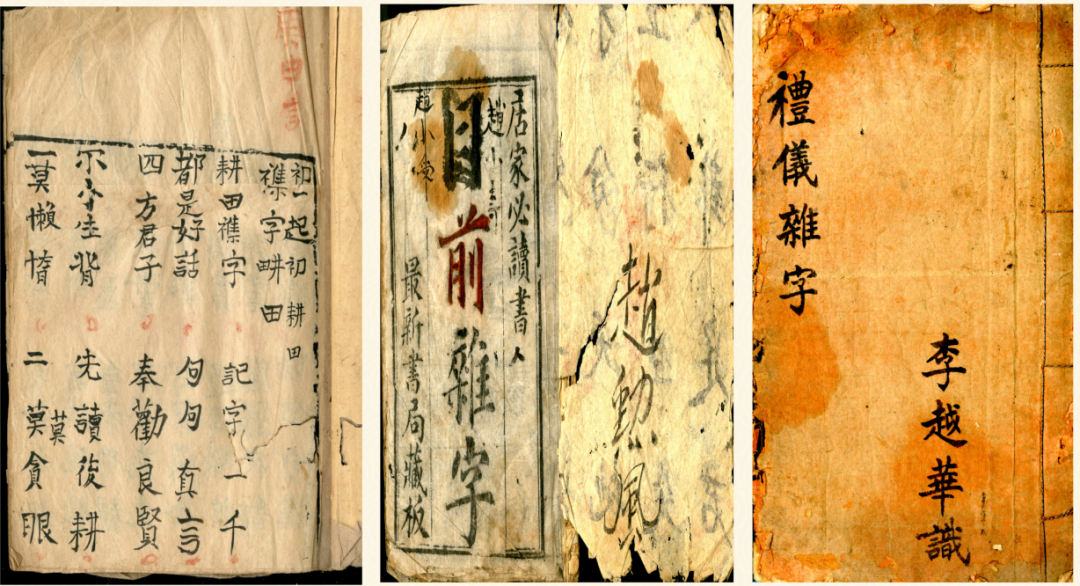 初一起初耕田
襍字畊田
耕田襍字 記字一千
都是好話 句句真言
四方君子 奉勸良賢
背 先讀後耕
一莫懶惰 二莫貪眼
莫
居家必讀書人
趙小
目前雜字
趙小
最新書局藏板
趙
禮儀雜字
李越華識